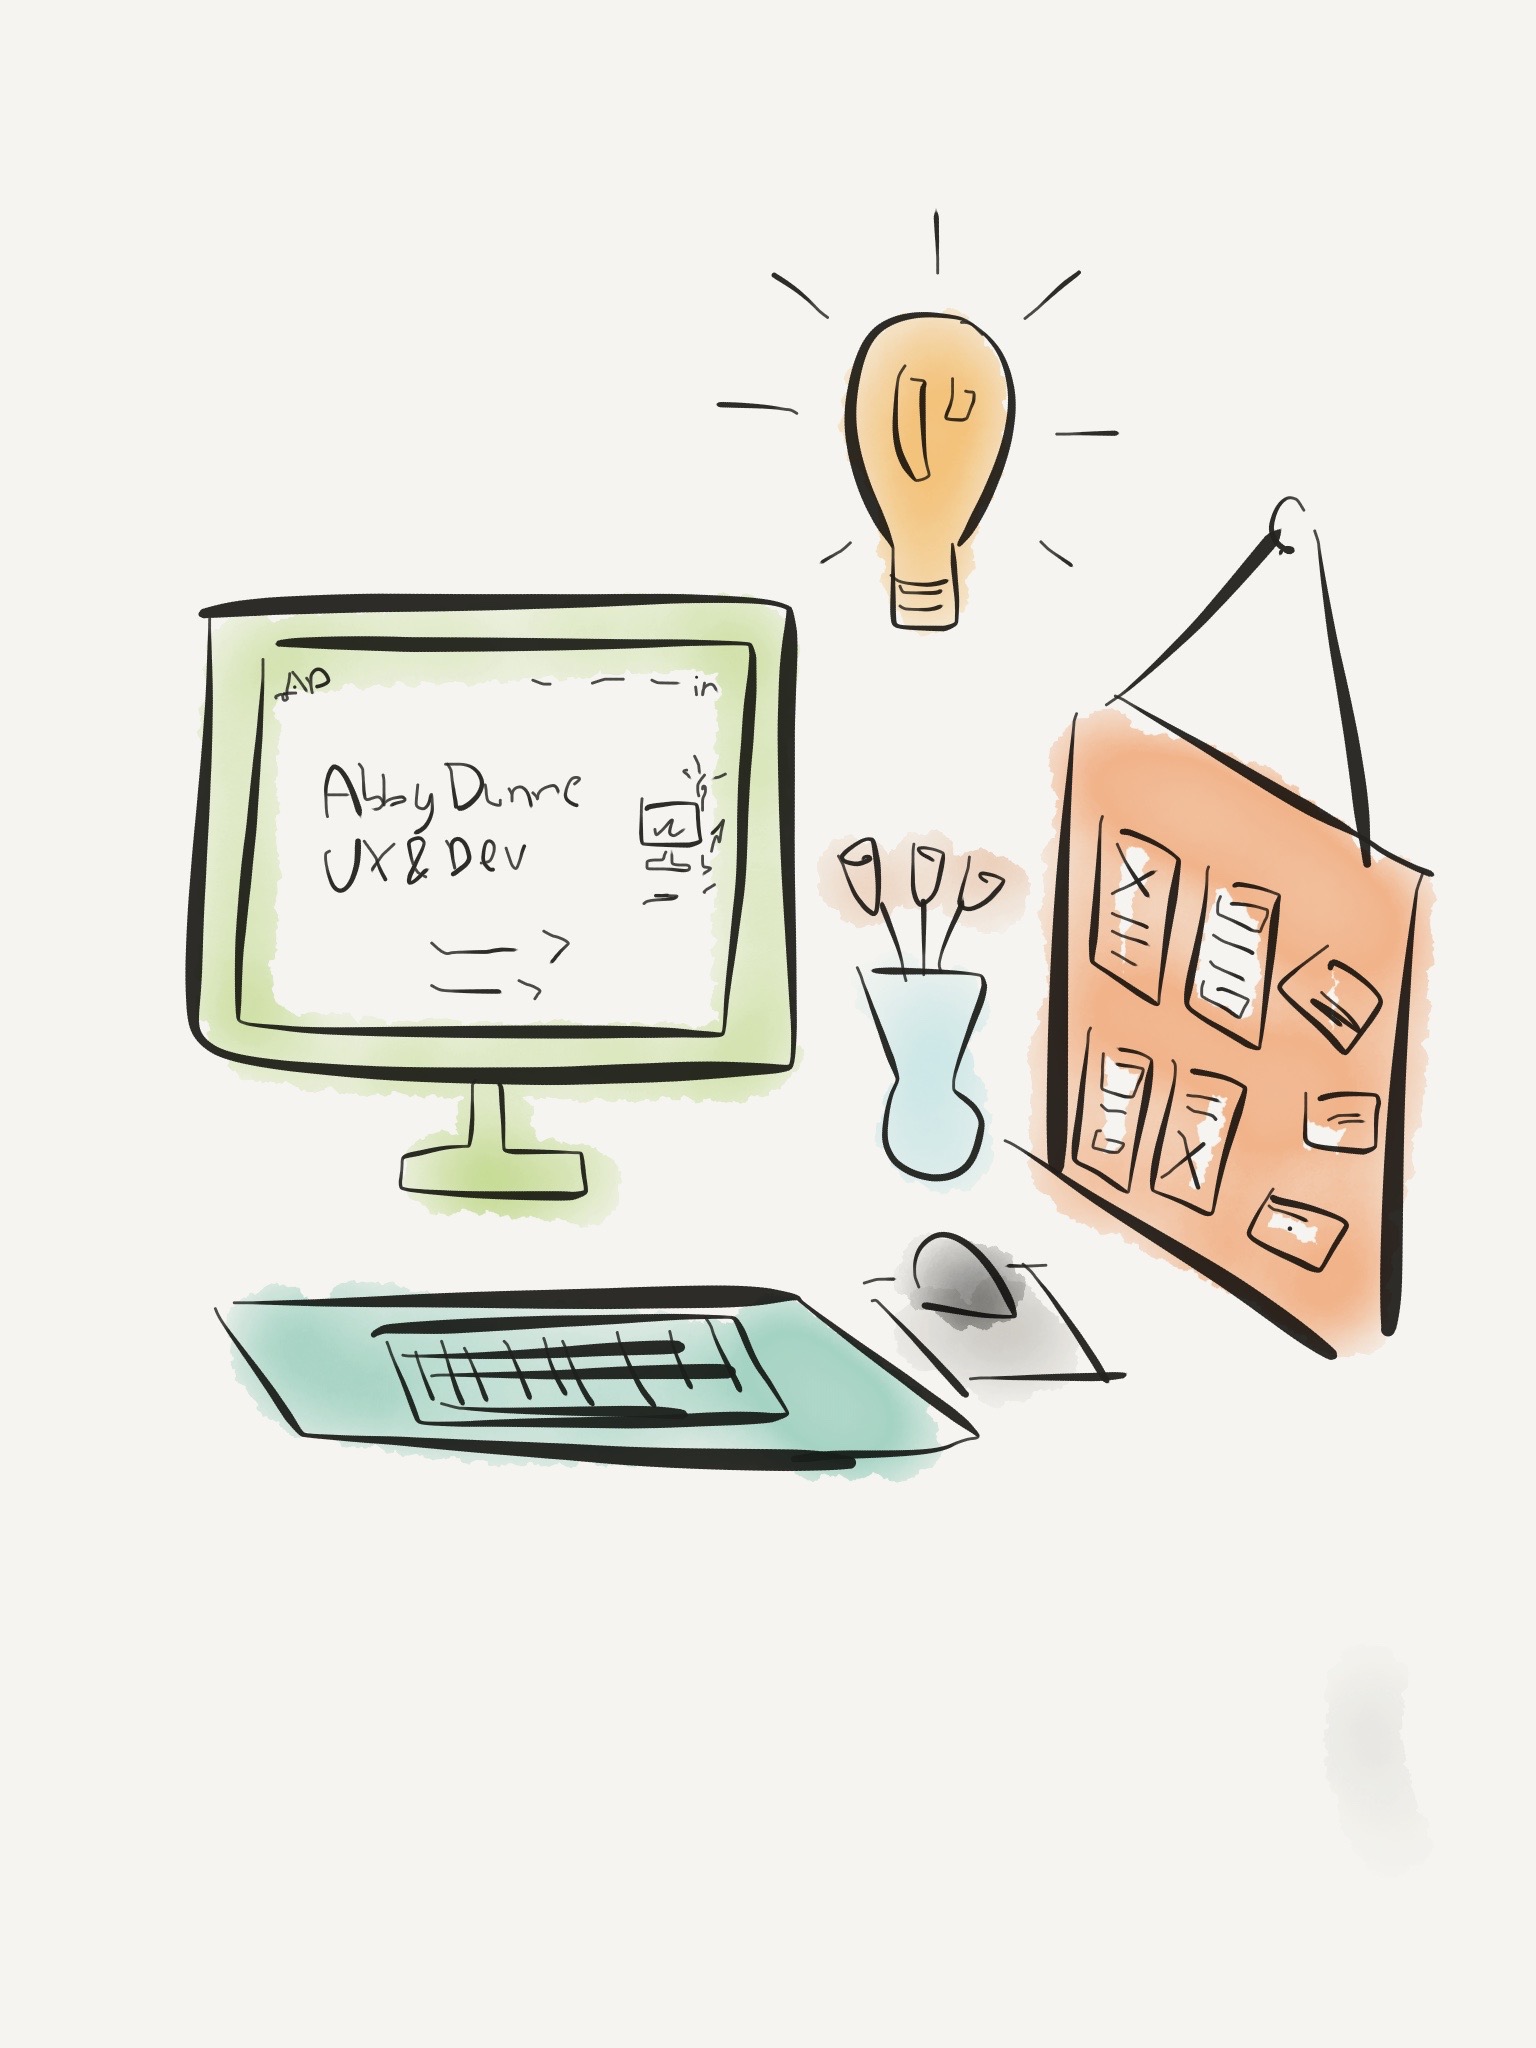 AD
in
Abby Dunne
UX & Dev